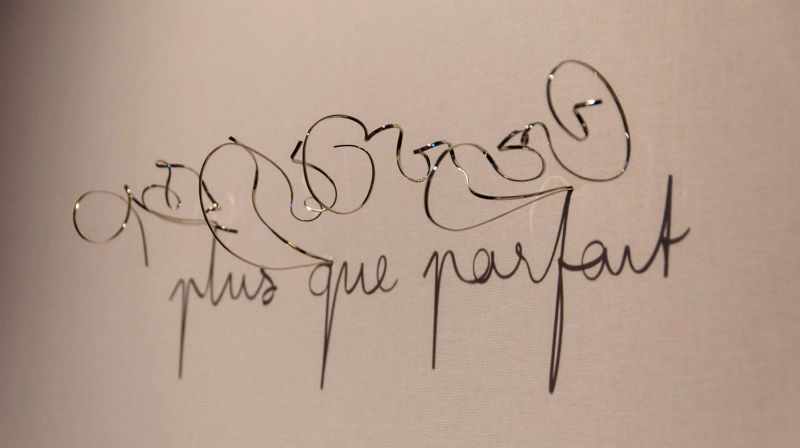 plus que parfait